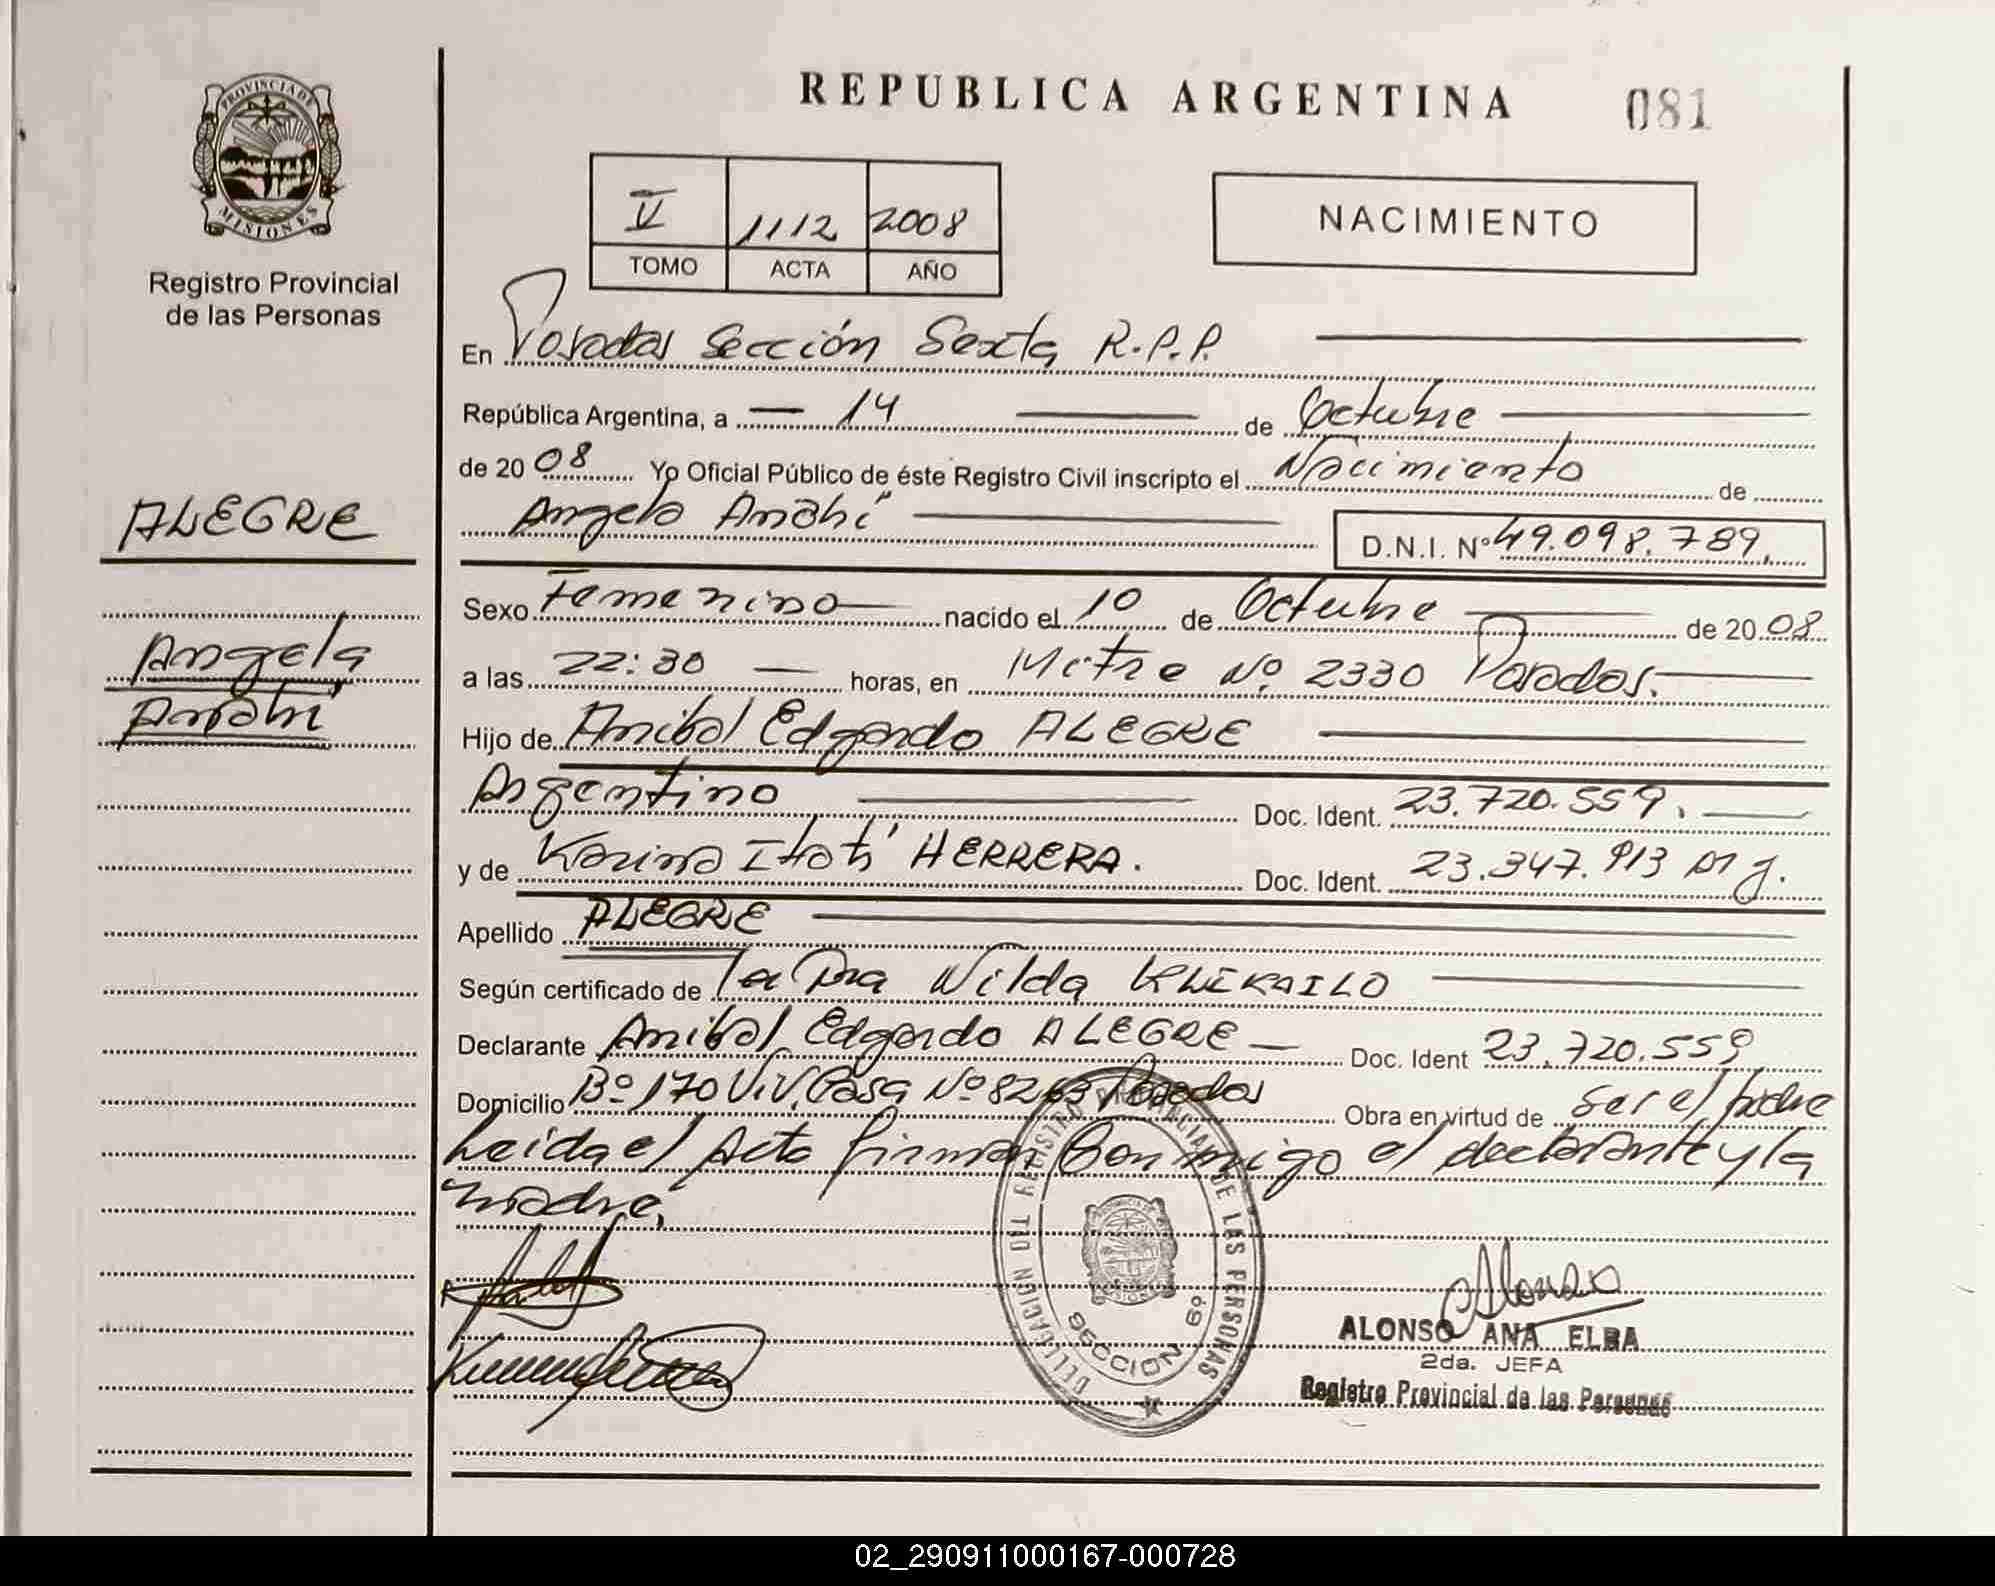 REPUBLICA ARGENTINA 081
PROVINCIA DE
MISIONES
Registro Provincial
de las Personas
V 1112 2008
TOMO ACTA AÑO
NACIMIENTO
En Posadas Sección Sexta R.P.P.
República Argentina, a 14 de Octubre
de 2008 Yo Oficial Público de éste Registro Civil inscripto el Nacimiento de
Angela Anahí D.N.I. Nº 49.098.789.
ALEGRE
Angela
Anahí
Sexo Femenino nacido el 10 de Octubre de 2008
a las 22:30 horas, en Mitre Nº 2330 Posadas.
Hijo de Anibal Edgardo ALEGRE
Argentino Doc. Ident. 23.720.559.
y de Karina Itatí HERRERA. Doc. Ident. 23.347.913 Arg.
Apellido ALEGRE
Según certificado de la Dra Nilda
Declarante Anibal Edgardo ALEGRE Doc. Ident 23.720.559
Domicilio Bº 170 Viv. Casa Nº 8263 Posadas Obra en virtud de ser el padre
Leida el Acta firman Conmigo el declarante y la
madre.
DELEGACION DEL REGISTRO PROVINCIAL DE LAS PERSONAS
SECCION 6º
Alonso
ALONSO ANA ELBA
2da. JEFA
Registro Provincial de las Personas
02_290911000167-000728